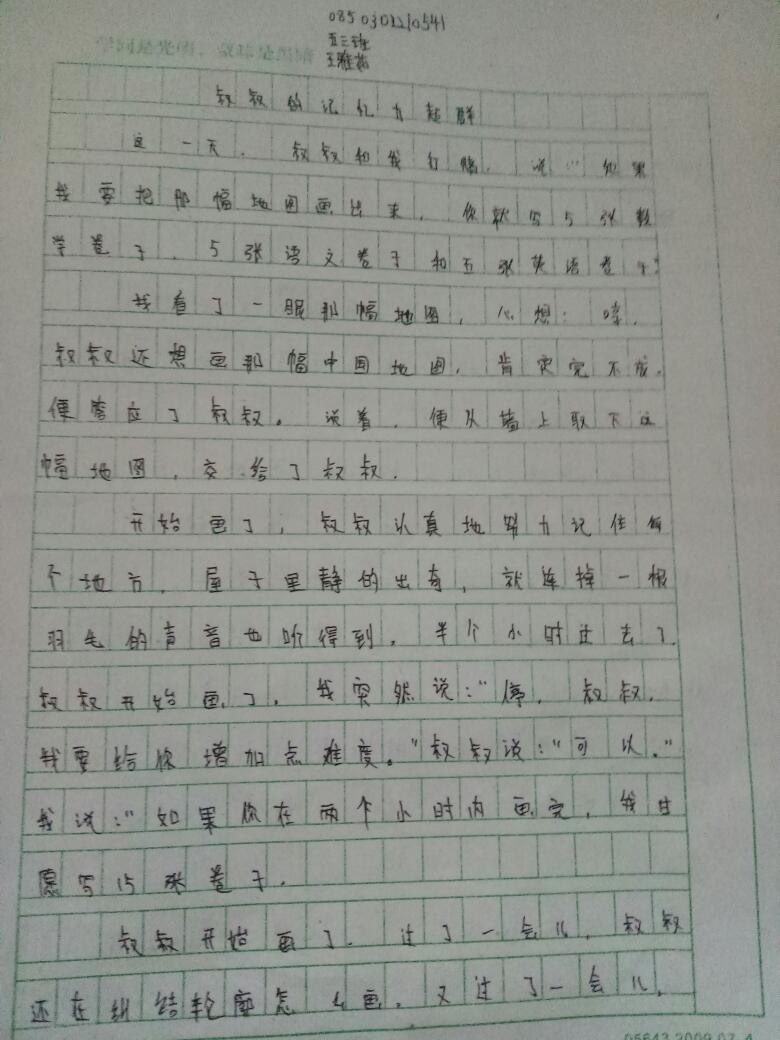 0850301210541
五三班
叔叔的记忆力超群
这一天，叔叔和我打赌，说：“如果
我要把那幅地图画出来，你就写5张数
学卷子，5张语文卷子和五张英语卷子”
我看了一眼那幅地图，心想：哼，
叔叔还想画那幅中国地图，肯定完不成，
便答应了叔叔。说着，便从墙上取下这
幅地图，交给了叔叔。
开始画了，叔叔认真地努力记住每
个地方，屋子里静的出奇，就连掉一根
羽毛的声音也听得到。半个小时过去了，
叔叔开始画了，我突然说：“停，叔叔，
我要给你增加点难度。”叔叔说：“可以。”
我说：“如果你在两个小时内画完，我甘
愿写15张卷子。
叔叔开始画了，过了一会儿，叔叔
还在纠结轮廓怎么画，又过了一会儿，
05643 2009.07.4